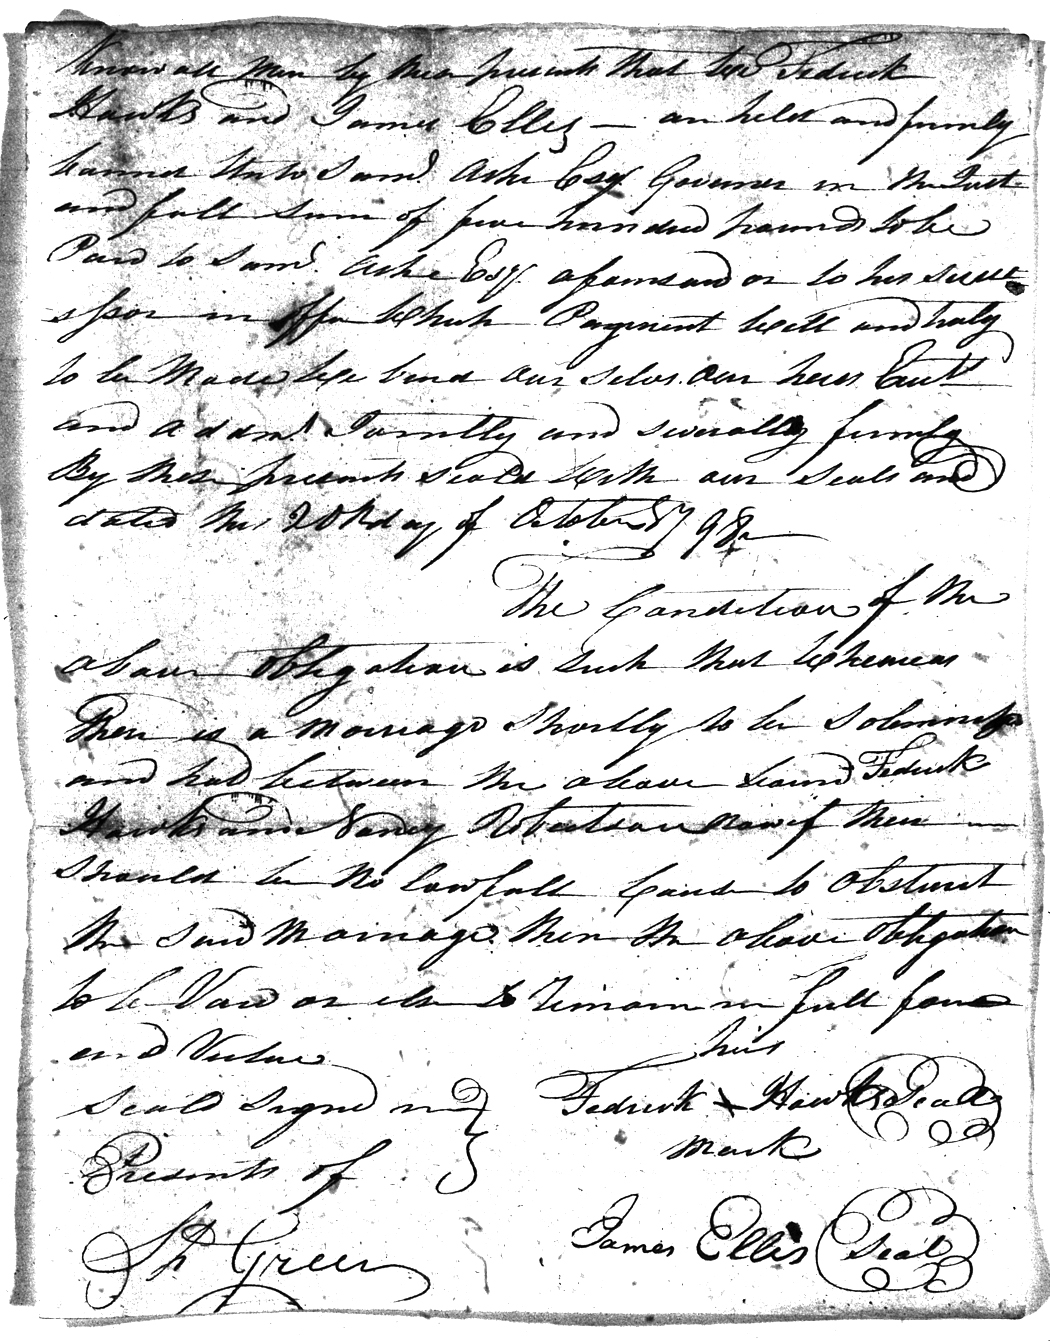 Know all Men by these presents that we Fedrick
Hawks and James Ellis — are held and firmly
bound Unto Saml. Ashe Esqr Governer in the Just
and full sum of five hundred pounds to be
Paid to Saml. Ashe Esqr. aforesaid or to his succe
ssor in offe Which Payment Well and truly
to be Made We bind our selves our heirs Exets
and addmr. Jointly and severally firmly
By these presents seald With our seals and
dated this 20th day of October 1798
The Condition of the
above obligation is such that Whereas
There is a marriage Shortly to be Solemnis
and had between the above bound Fedrick
Hawks and Nancy Robertson now if there
should be No lawfull Cause to obstruct
the said Marriage then the above obligation
to be Void or else to Remain in full force
and Virtue
Seald Signd in
Presents of
his
Fedrick x Hawks Seal
mark
James Ellis Seal
Green